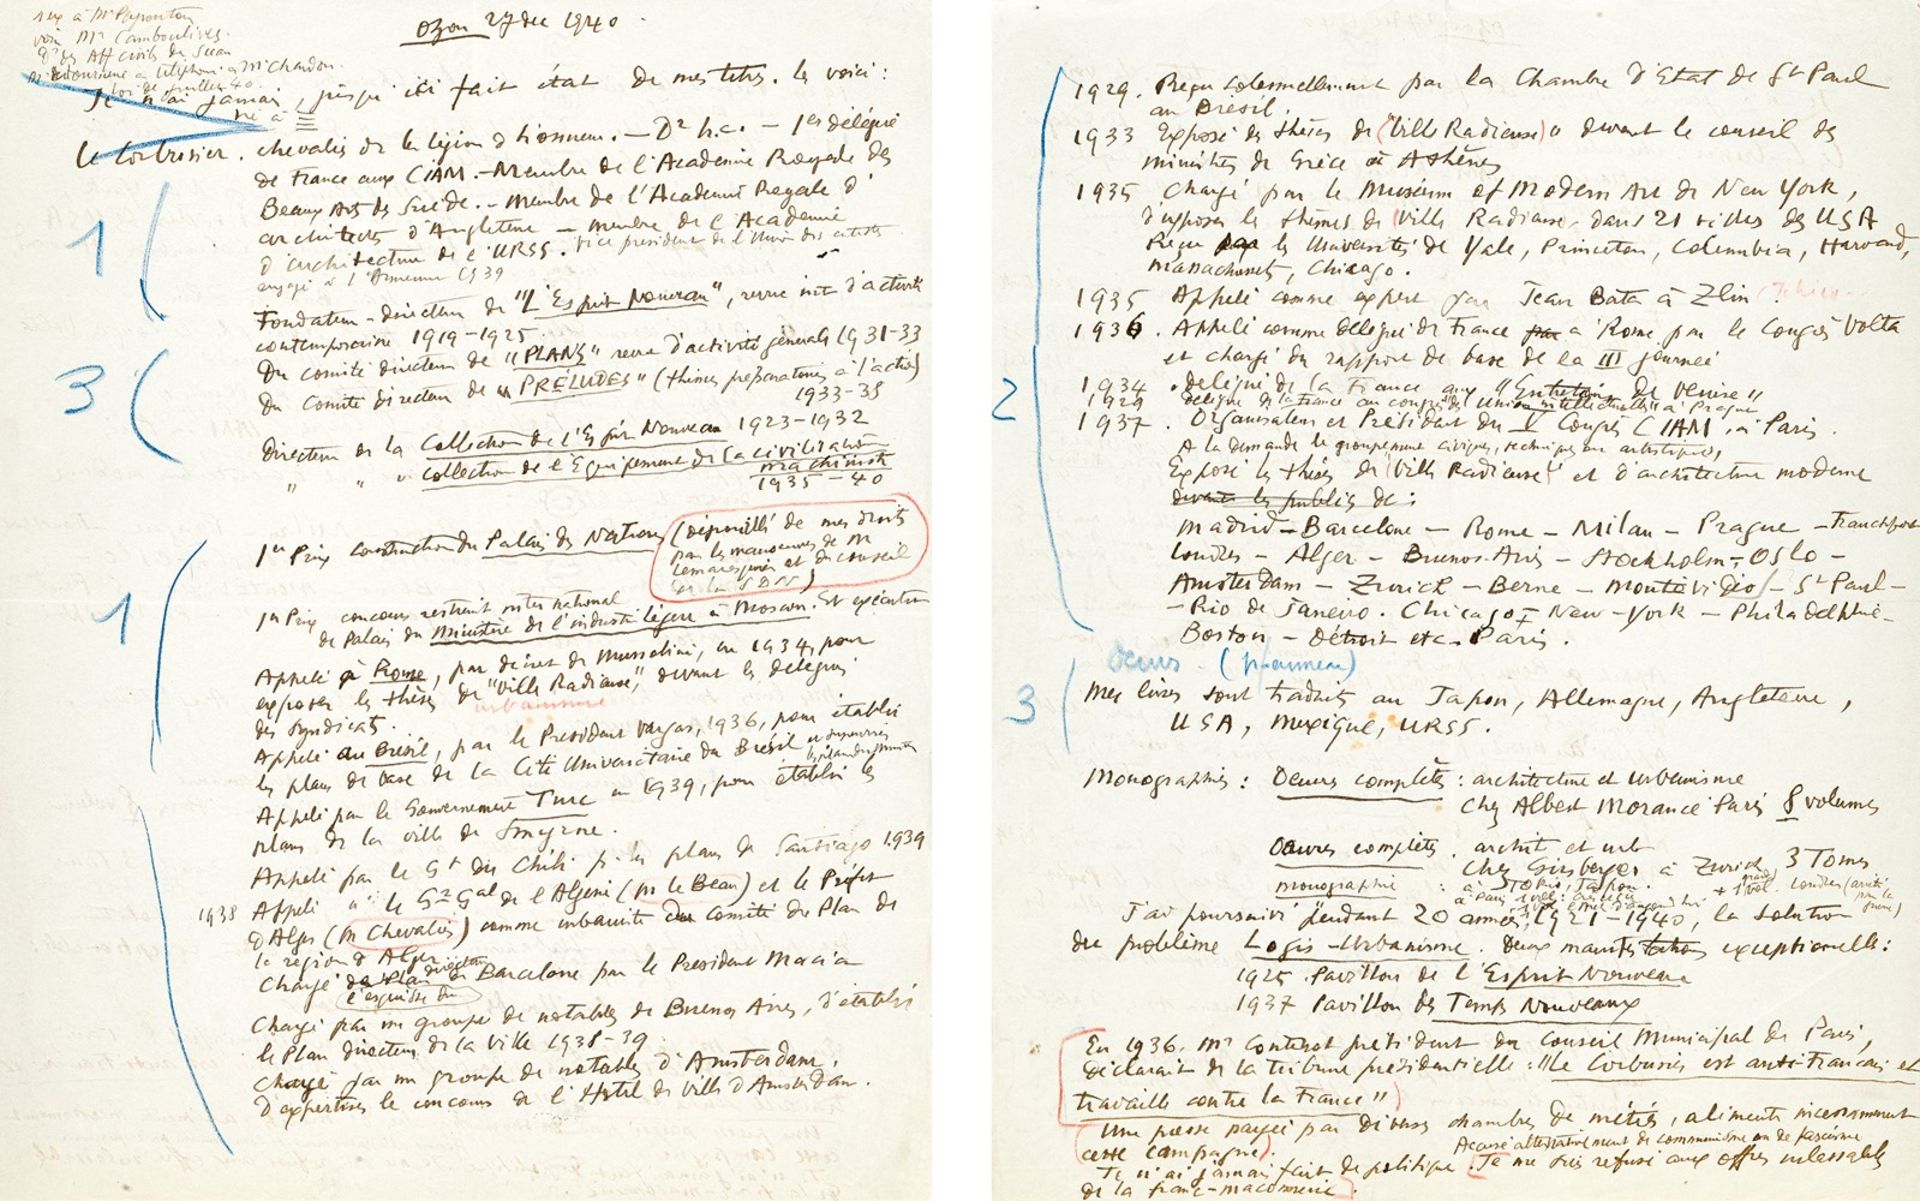 Ozon 27 dec 1940.
voir Mr Camboulives.
des Aff civils de
à téléphoné à Mr Chandon.
loi de juillet 40
Je n'ai jamais, jusqu'ici fait état de mes titres. Les voici :
né à
Le Corbusier. chevalier de la légion d'honneur. — Dr h.c. — 1er délégué
de France aux CIAM. — Membre de l'Academie Royale des
Beaux Arts de Suède. — Membre de l'Academie Royale d'
architects d'Angleterre — membre de l'Academie
d'architecture de l'URSS. Vice président de l'Union des artistes
engagé à l' 1939
Fondateur-directeur de "L'Esprit Nouveau", revue int d'activité
contemporaine 1919-1925.
Du comité directeur de "PLANS" revue d'activité générale 1931-33
Du Comité directeur de "PRÉLUDES" (thèmes préparatoires à l'action)
1933-35
Directeur de la Collection de l'Esprit Nouveau 1923-1932
" " " collection de l'Equipement de la civilisation
machiniste
1935-40
1er Prix construction du Palais des Nations (dépouillé de mes droits
par les manoeuvres de M
Lemaresquier et du conseil
de la SDN)
1er Prix concours restreint international
de Palais du Ministère de l'industrie légère à Moscou. Et exécution
Appelé à Rome, par décret de Mussolini, en 1934, pour
exposer les thèses de "Ville Radieuse", devant les délégués
urbanisme
des Syndicats.
Appelé au Brésil, par le President Vargas, 1936, pour établir
les plans de base de la Cité Universitaire du Brésil et
Appelé par le Gouvernement Turc en 1939, pour établir les
plans de la ville de Smyrne.
Appelé par le Gt du Chili p. les plans de Santiago 1939
1938 Appelé " le Gr Gal de l'Algérie (M le Beau) et le Préfet
d'Alger (M Chevalier) comme urbaniste du Comité du Plan de
la région d'Alger
Chargé de Plan directeur de Barcelone par le President Macia
l'esquisse du
Chargé par un groupe de notables de Buenos Aires, d'établir
le Plan directeur de la Ville 1938-39.
Chargé par un groupe de notables d'Amsterdam,
d'expertiser le concours de l'Hotel de Ville d'Amsterdam.
1
3
1
1929. Reçu solennellement par la Chambre d'Etat de St Paul
au Brésil.
1933 Exposé des thèses de "Ville Radieuse" devant le conseil des
ministres de Grèce à Athènes
1935 Chargé par le Museum of Modern Art de New York,
d'exposer les thèmes de "Ville Radieuse" dans 21 villes des USA
Reçu par les Universités de Yale, Princeton, Columbia, Harvard,
Massachusets, Chicago.
1935 Appelé comme expert par Jean Bata à Zlin
1936. Appelé comme délégué de France par à Rome par le Congrès Volta
et chargé du rapport de base de la III journée
1934 . délégué de la France aux "Entretiens de Venise"
1929 délégué de la France au congrès des Unions intellectuelles à Prague
1937. Organisateur et Président du V Congrès CIAM, à Paris.
A la demande de groupements civiques, techniques ou artistiques,
Exposé les thèses de "Ville Radieuse" et d'architecture moderne
devant les publics de :
Madrid — Barcelone — Rome — Milan — Prague — Francfort
Londres — Alger — Buenos-Aires — Stockholm — Oslo —
Amsterdam — Zurich — Berne — Montévidéo — St Paul —
— Rio de Janeiro. Chicago — New-York — Philadelphie —
Boston — Détroit etc — Paris.
2
3
Mes livres sont traduits au Japon, Allemagne, Angleterre,
USA, Mexique, URSS.
Monographies : Oeuvres complètes : architecture et urbanisme
chez Albert Morancé Paris 8 volumes
Oeuvres complètes. archit et urb
chez Girsberger à Zurich 3 Tomes
monographie : à Tokio, Japon. + 1 vol. Londres (arrêté
par la
guerre)
J'ai poursuivi pendant 20 années, 1921-1940, la solution
du problème Logis-Urbanisme. Deux manifestations exceptionnelles :
1925 Pavillon de l'Esprit Nouveau
1937 Pavillon des Temps Nouveaux
En 1936. Mr Contenot président du Conseil Municipal de Paris,
déclarait de la tribune présidentielle : "Le Corbusier est anti-français et
travaille contre la France"
Une presse payée par diverses chambres de métiers, alimente incessamment
cette campagne.
Accusé alternativement de communisme ou de fascisme
Je n'ai jamais fait de politique. Je me suis refusé aux offres incessantes
de la franc-maçonnerie.